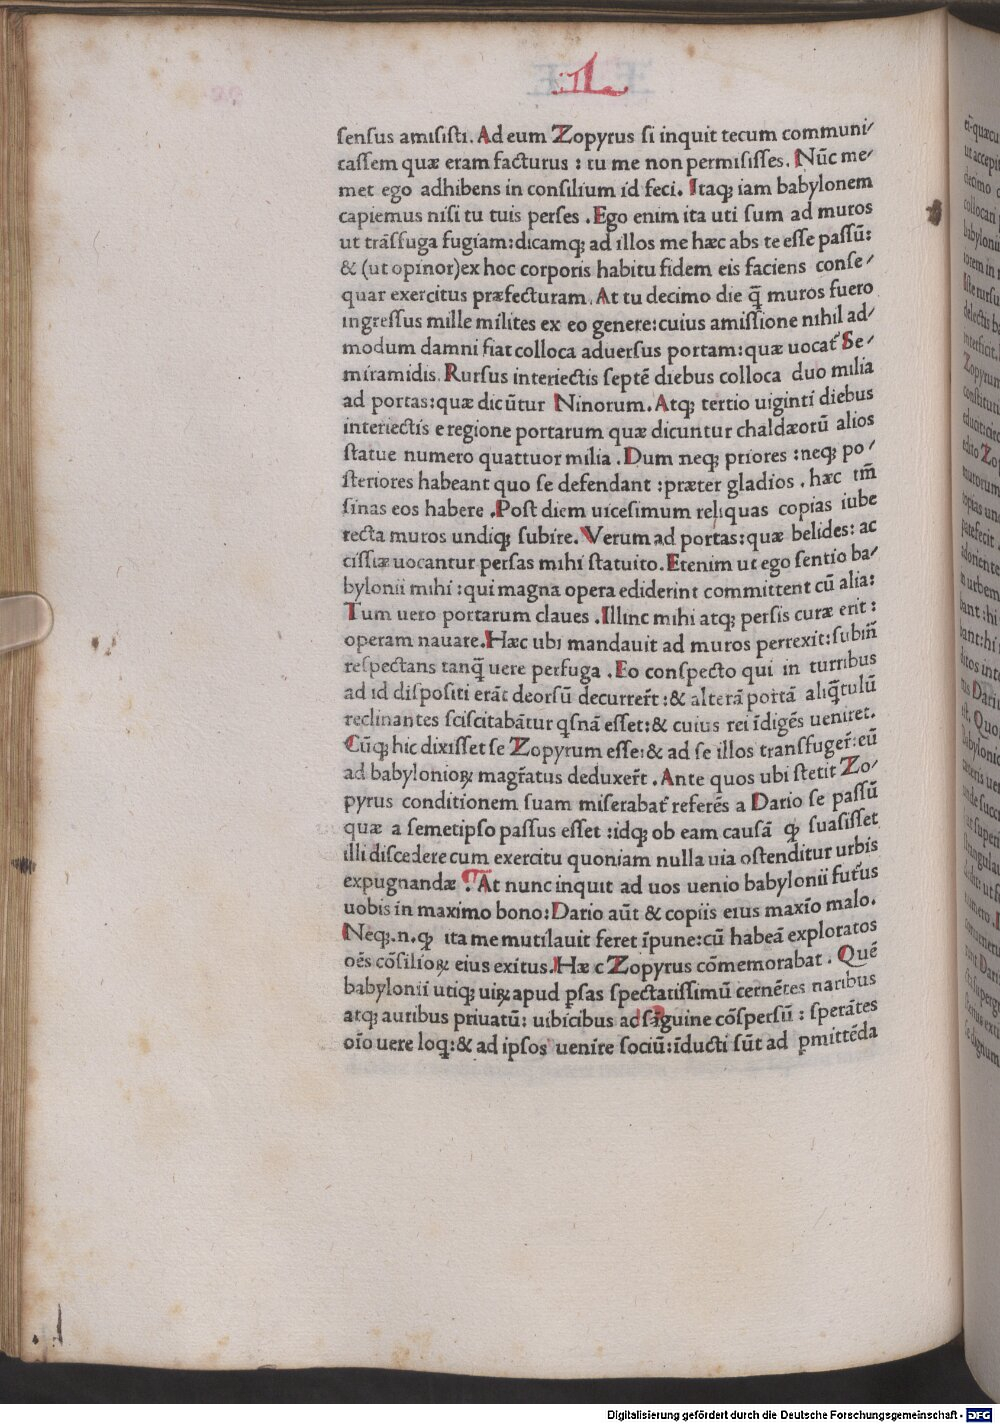 .L
sensus amisisti. Ad eum Zopyrus si inquit tecum communi/
cassem quæ eram facturus : tu me non permisisses. Nūc me/
met ego adhibens in consilium id feci. Itaq; iam babylonem
capiemus nisi tu tuis perses . Ego enim ita uti sum ad muros
ut trāsfuga fugiam: dicamq; ad illos me hæc abs te esse passū:
& (ut opinor) ex hoc corporis habitu fidem eis faciens conse/
quar exercitus præfecturam. At tu decimo die q̄ muros fuero
ingressus mille milites ex eo genere: cuius amissione nihil ad/
modum damni fiat colloca aduersus portam: quæ uocat᷑ Se/
miramidis. Rursus interiectis septē diebus colloca duo milia
ad portas: quæ dicūtur Ninorum. Atq; tertio uiginti diebus
interiectis e regione portarum quæ dicuntur chaldæorū alios
statue numero quattuor milia . Dum neq; priores : neq; po/
steriores habeant quo se defendant : præter gladios . hæc im̄
sinas eos habere . Post diem uicesimum reliquas copias iube
recta muros undiq; subire. Verum ad portas: quæ belides: ac
cissiæ uocantur persas mihi statuito. Etenim ut ego sentio ba/
bylonii mihi : qui magna opera ediderint committent cū alia:
Tum uero portarum claues . Illinc mihi atq; persis curæ erit :
operam nauare. Hæc ubi mandauit ad muros perrexit: subin̄
respectans tanq̄ uere perfuga . Eo conspecto qui in turribus
ad id dispositi erāt deorsū decurrer̄t : & alterā portā aliq̄tulū
reclinantes sciscitabātur qsnā esset: & cuius rei īdigēs ueniret.
Cūq; hic dixisset se Zopyrum esse: & ad se illos transfuger̄: eū
ad babylonioꝝ magr̄atus deduxer̄t . Ante quos ubi stetit Zo/
pyrus conditionem suam miserabat᷑ referēs a Dario se passū
quæ a semetipso passus esset : idq; ob eam causā ꝙ suasisset
illi discedere cum exercitu quoniam nulla uia ostenditur urbis
expugnandæ . At nunc inquit ad uos uenio babylonii fut᷑us
uobis in maximo bono: Dario aūt & copiis eius maxīo malo.
Neq; .n. ꝙ ita me mutilauit feret īpune: cū habeā exploratos
oēs cōsilioꝝ eius exitus. Hæ c Zopyrus cōmemorabat . Quē
babylonii utiq; uiꝝ apud psas spectatissimū cernētes naribus
atq; auribus priuatū: uibicibus ac sāguine cōspersū : sperātes
oīo uere loq: & ad ipsos uenire sociū: īducti sūt ad pmittēda
Digitalisierung gefördert durch die Deutsche Forschungsgemeinschaft - DFG